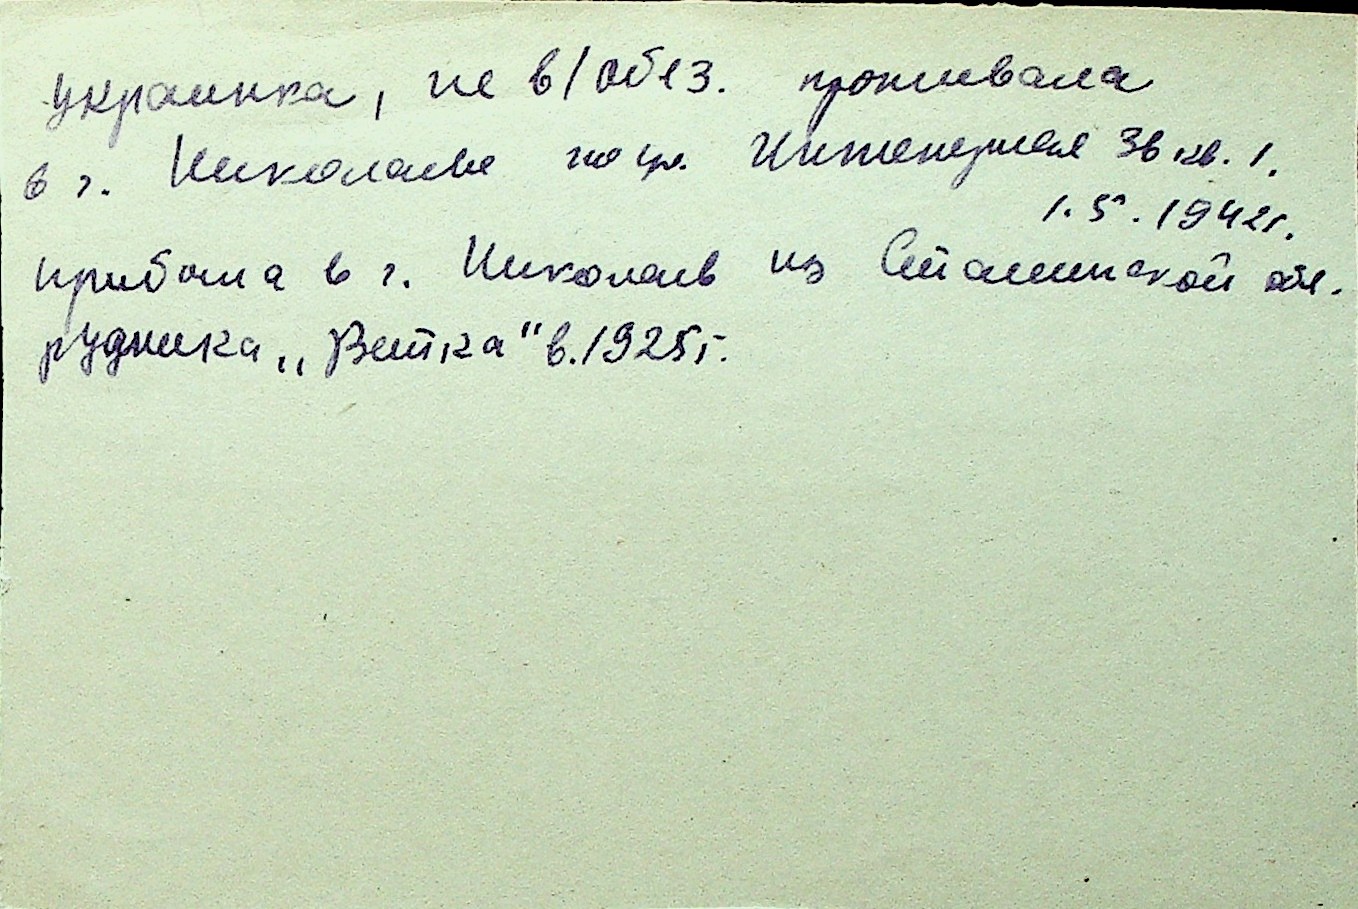 украинка, не в/обяз. проживала
в г. Николаеве по ул. Инженерная 3в кв. 1.
1.5.1942г.
прибыла в г. Николаев из Сталинской обл.
рудника „Ветка" в.1925г.